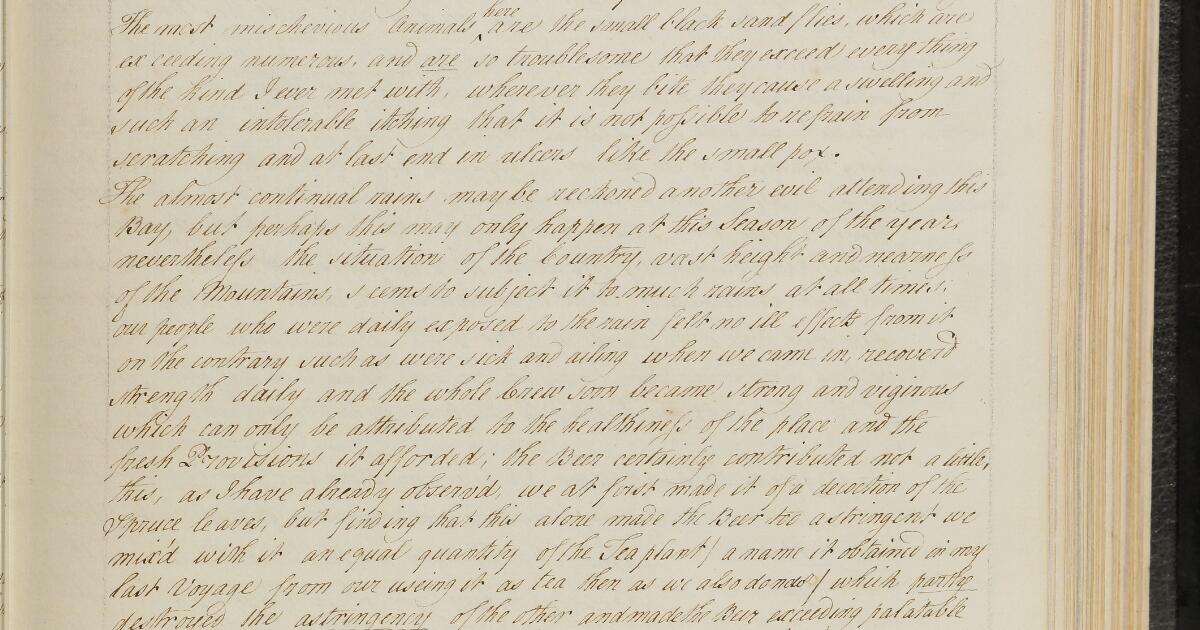 The most mischevious Animals here are the small black sand flies, which are
exceeding numerous, and are so troublesome that they exceed every thing
of the kind I ever met with, wherever they bite they cause a swelling and
such an intolerable itching that it is not possible to refrain from
scratching and at last end in ulcers like the small pox.
The almost continual rains may be reckoned another evil attending this
Bay, but perhaps this may only happen at this Season of the year,
nevertheless the situation of the Country, vast height and nearness
of the Mountains, seems to subject it to much rains at all times;
our people who were daily exposed to the rain felt no ill effects from it
on the contrary such as were sick and ailing when we came in, recoverd
strength daily and the whole Crew soon became strong and vigirous
which can only be attributed to the healthiness of the place and the
fresh Provisions it afforded; the Beer certainly contributed not a little,
this, as I have already observ'd, we at first made it of a decoction of the
Spruce leaves, but finding that this alone made the Beer too astringent we
mix'd with it an equal quantity of the Tea plant / a name it obtained in my
last Voyage from our useing it as tea then as we also do now / which partly
destroyed the astringency of the other and made the Beer exceeding palatable